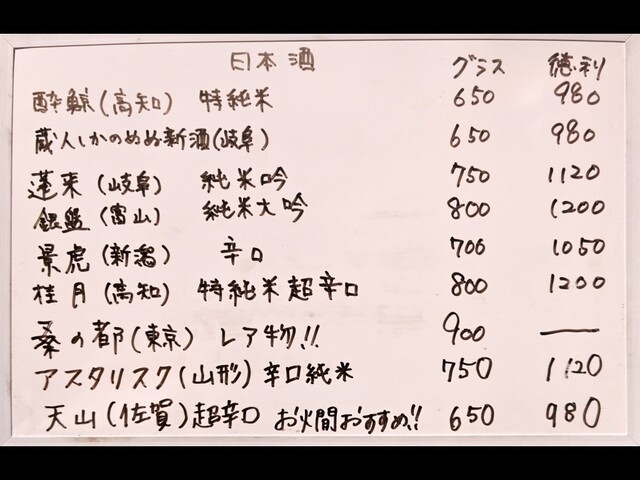 日本酒 グラス 徳利
酔鯨(高知) 特純米 650 980
蔵人しかのめぬ新酒(岐阜) 650 980
蓬莱(岐阜) 純米吟 750 1120
銀盤(富山) 純米大吟 800 1200
景虎(新潟) 辛口 700 1050
桂月(高知) 特純米超辛口 800 1200
桑の都(東京) レア物!! 900 —
アスタリスク(山形)辛口純米 750 1120
天山(佐賀)超辛口 お火間おすすめ!! 650 980